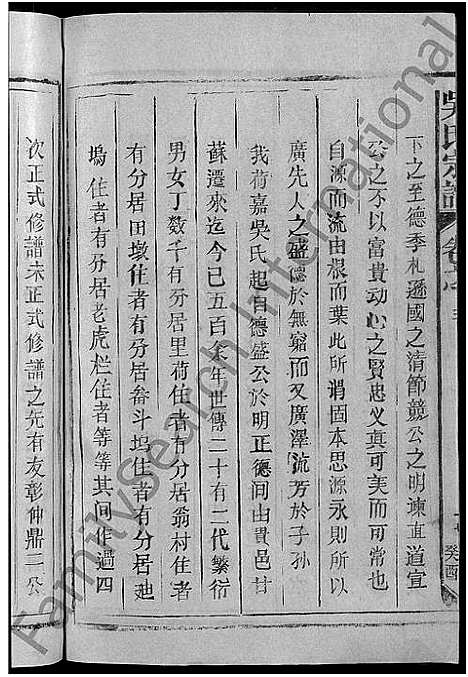 吳氏宗譜
下之至德季札遜國之清節競公之明諫直道宣
公之不以富貴动心之賢忠义真可美而可變
自源而流由根而葉此所谓固本思源永則所以
廣先人之盛德於無窮而又廣澤流芳於子孙
我荷嘉吳氏起自德盛公於明正德间由貴邑甘
蘇遷來迄今已五百余年世傳二十有二代繁衍
男女丁数千有分居里荷住者有分居翁村住者
有分居田墩住者有分居畚斗塢住者有分居
塢住者有分居老虎栏住者等等其间作過四
次正式修譜未正式修譜之先有友彰仲鼎二公
癸酉
FamilySearch International